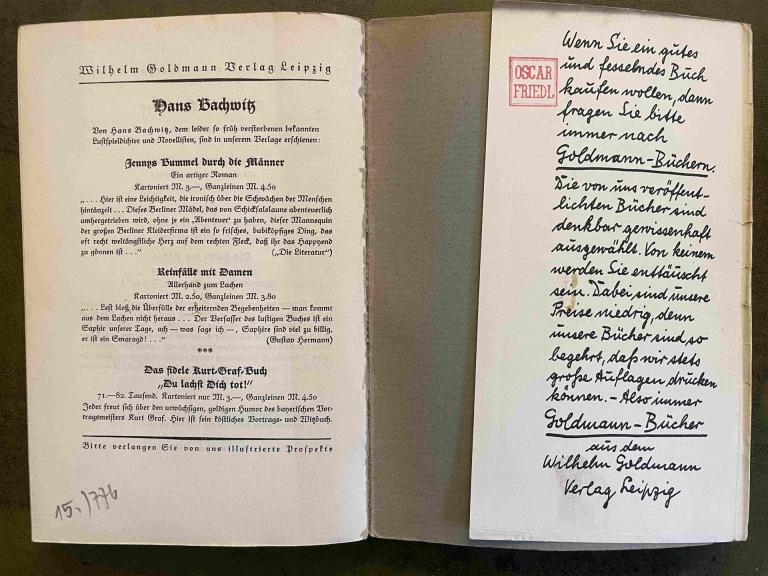 Wilhelm Goldmann Verlag Leipzig
Hans Bachwitz
Von Hans Bachwitz, dem leider so früh verstorbenen bekannten
Lustspieldichter und Novellisten, sind in unserem Verlage erschienen:
Jennys Bummel durch die Männer
Ein artiger Roman
Kartoniert M. 3.—, Ganzleinen M. 4.50
„... Hier ist eine Leichtigkeit, die ironisch über die Schwächen der Menschen
hintänzelt ... Dieses Berliner Mädel, das von Schicksalslaune abenteuerlich
umhergetrieben wird, ohne je ein „Abenteuer“ zu haben, dieser Mannequin
der großen Berliner Kleiderfirma ist ein so frisches, bubiköpfiges Ding, das
oft recht weltängstliche Herz auf dem rechten Fleck, daß ihr das Happyend
zu gönnen ist ...“ („Die Literatur“)
Reinfälle mit Damen
Allerhand zum Lachen
Kartoniert M. 2.50, Ganzleinen M. 3.80
„... Lest bloß die Überfülle der erheiternden Begebenheiten — man kommt
aus dem Lachen nicht heraus ... Der Verfasser des lustigen Buches ist ein
Saphir unserer Tage, ach — was sage ich —, Saphire sind viel zu billig,
er ist ein Smaragd! ...“ (Gustav Hermann)
***
Das fidele Kurt-Graf-Buch
„Du lachst Dich tot!“
71.—82. Tausend. Kartoniert nur M. 3.—, Ganzleinen M. 4.50
Jeder freut sich über den urwüchsigen, goldigen Humor des bayerischen Vor-
tragsmeisters Kurt Graf. Hier ist sein köstliches Vortrags- und Witzbuch.
Bitte verlangen Sie von uns illustrierte Prospekte
15.-/776
OSCAR
FRIEDL
Wenn Sie ein gutes
und fesselndes Buch
kaufen wollen, dann
fragen Sie bitte
immer nach
Goldmann-Büchern.
Die von uns veröffent-
lichten Bücher sind
denkbar gewissenhaft
ausgewählt. Von keinem
werden Sie enttäuscht
sein. Dabei sind unsere
Preise niedrig, denn
unsere Bücher sind so
begehrt, daß wir stets
große Auflagen drucken
können. – Also immer
Goldmann-Bücher
aus dem
Wilhelm Goldmann
Verlag Leipzig